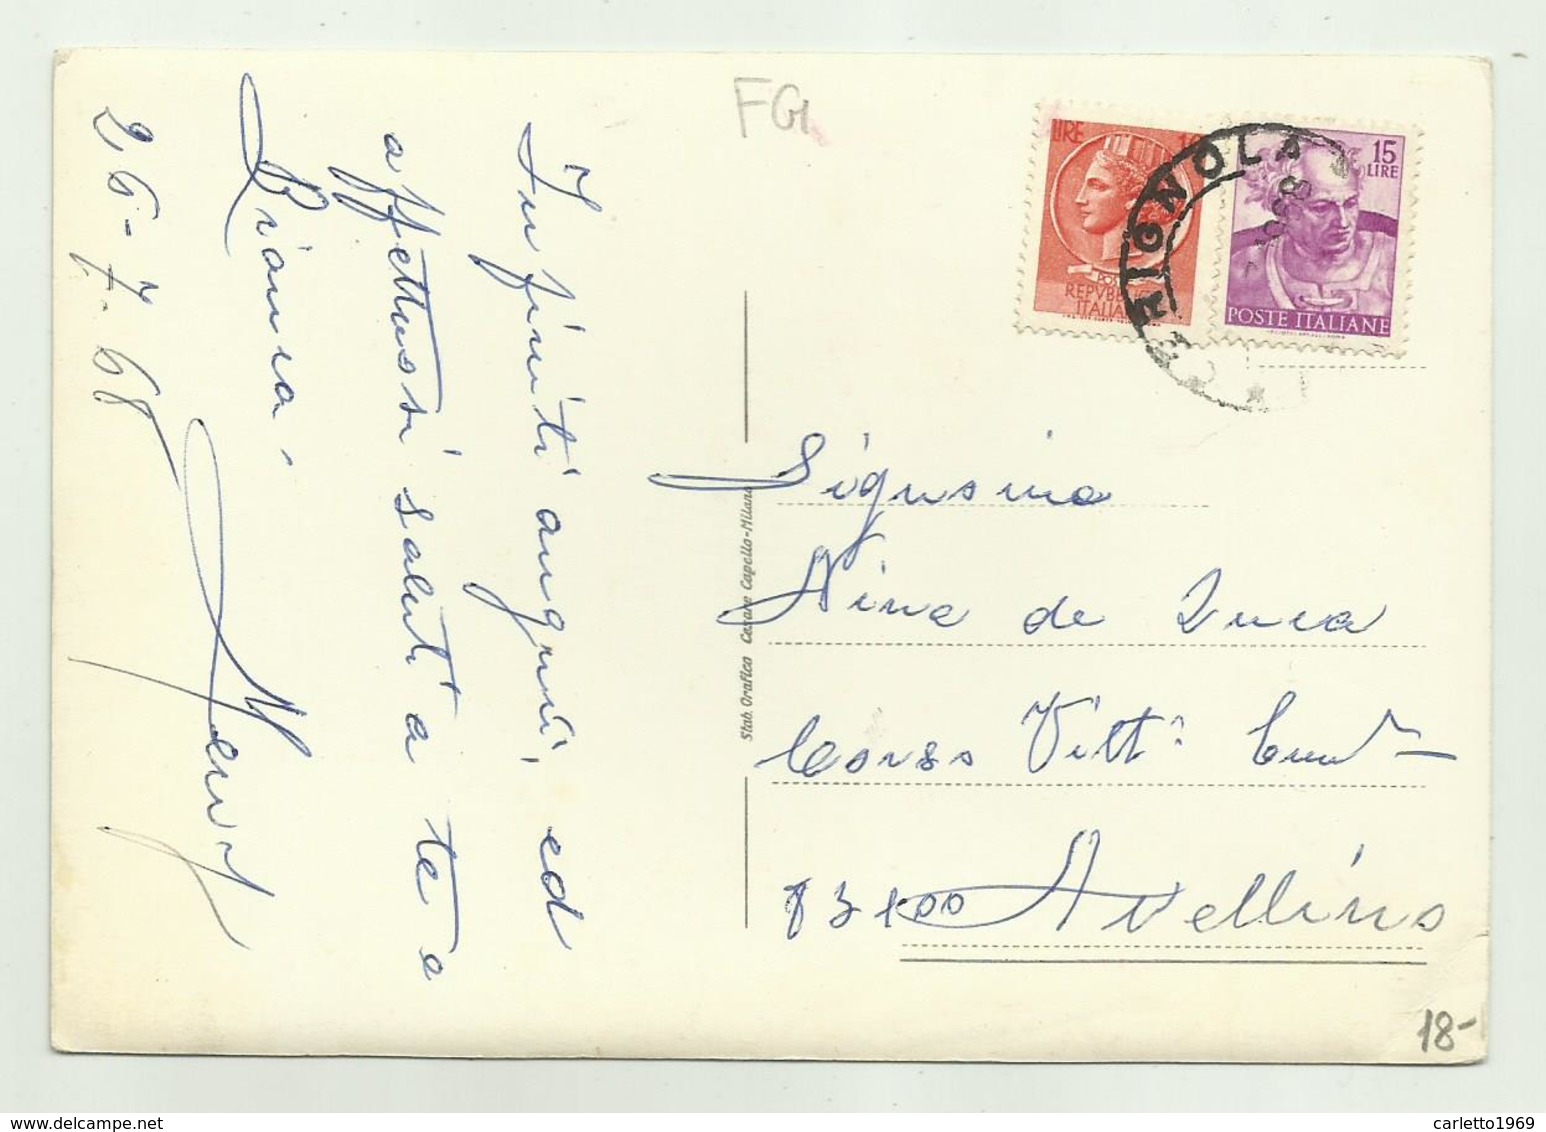 Infiniti auguri, ed
affettuosi saluti a te e
26-7-68
FG
LIRE
POSTE
REPVBBLICA
ITALIANA
15
LIRE
POSTE ITALIANE
CERIGNOLA
Signorina
Nina de Luca
Corso Vitt. Eman.
83100 Avellino
Stab. Grafico Cesare Capello-Milano
18-
carletto1969